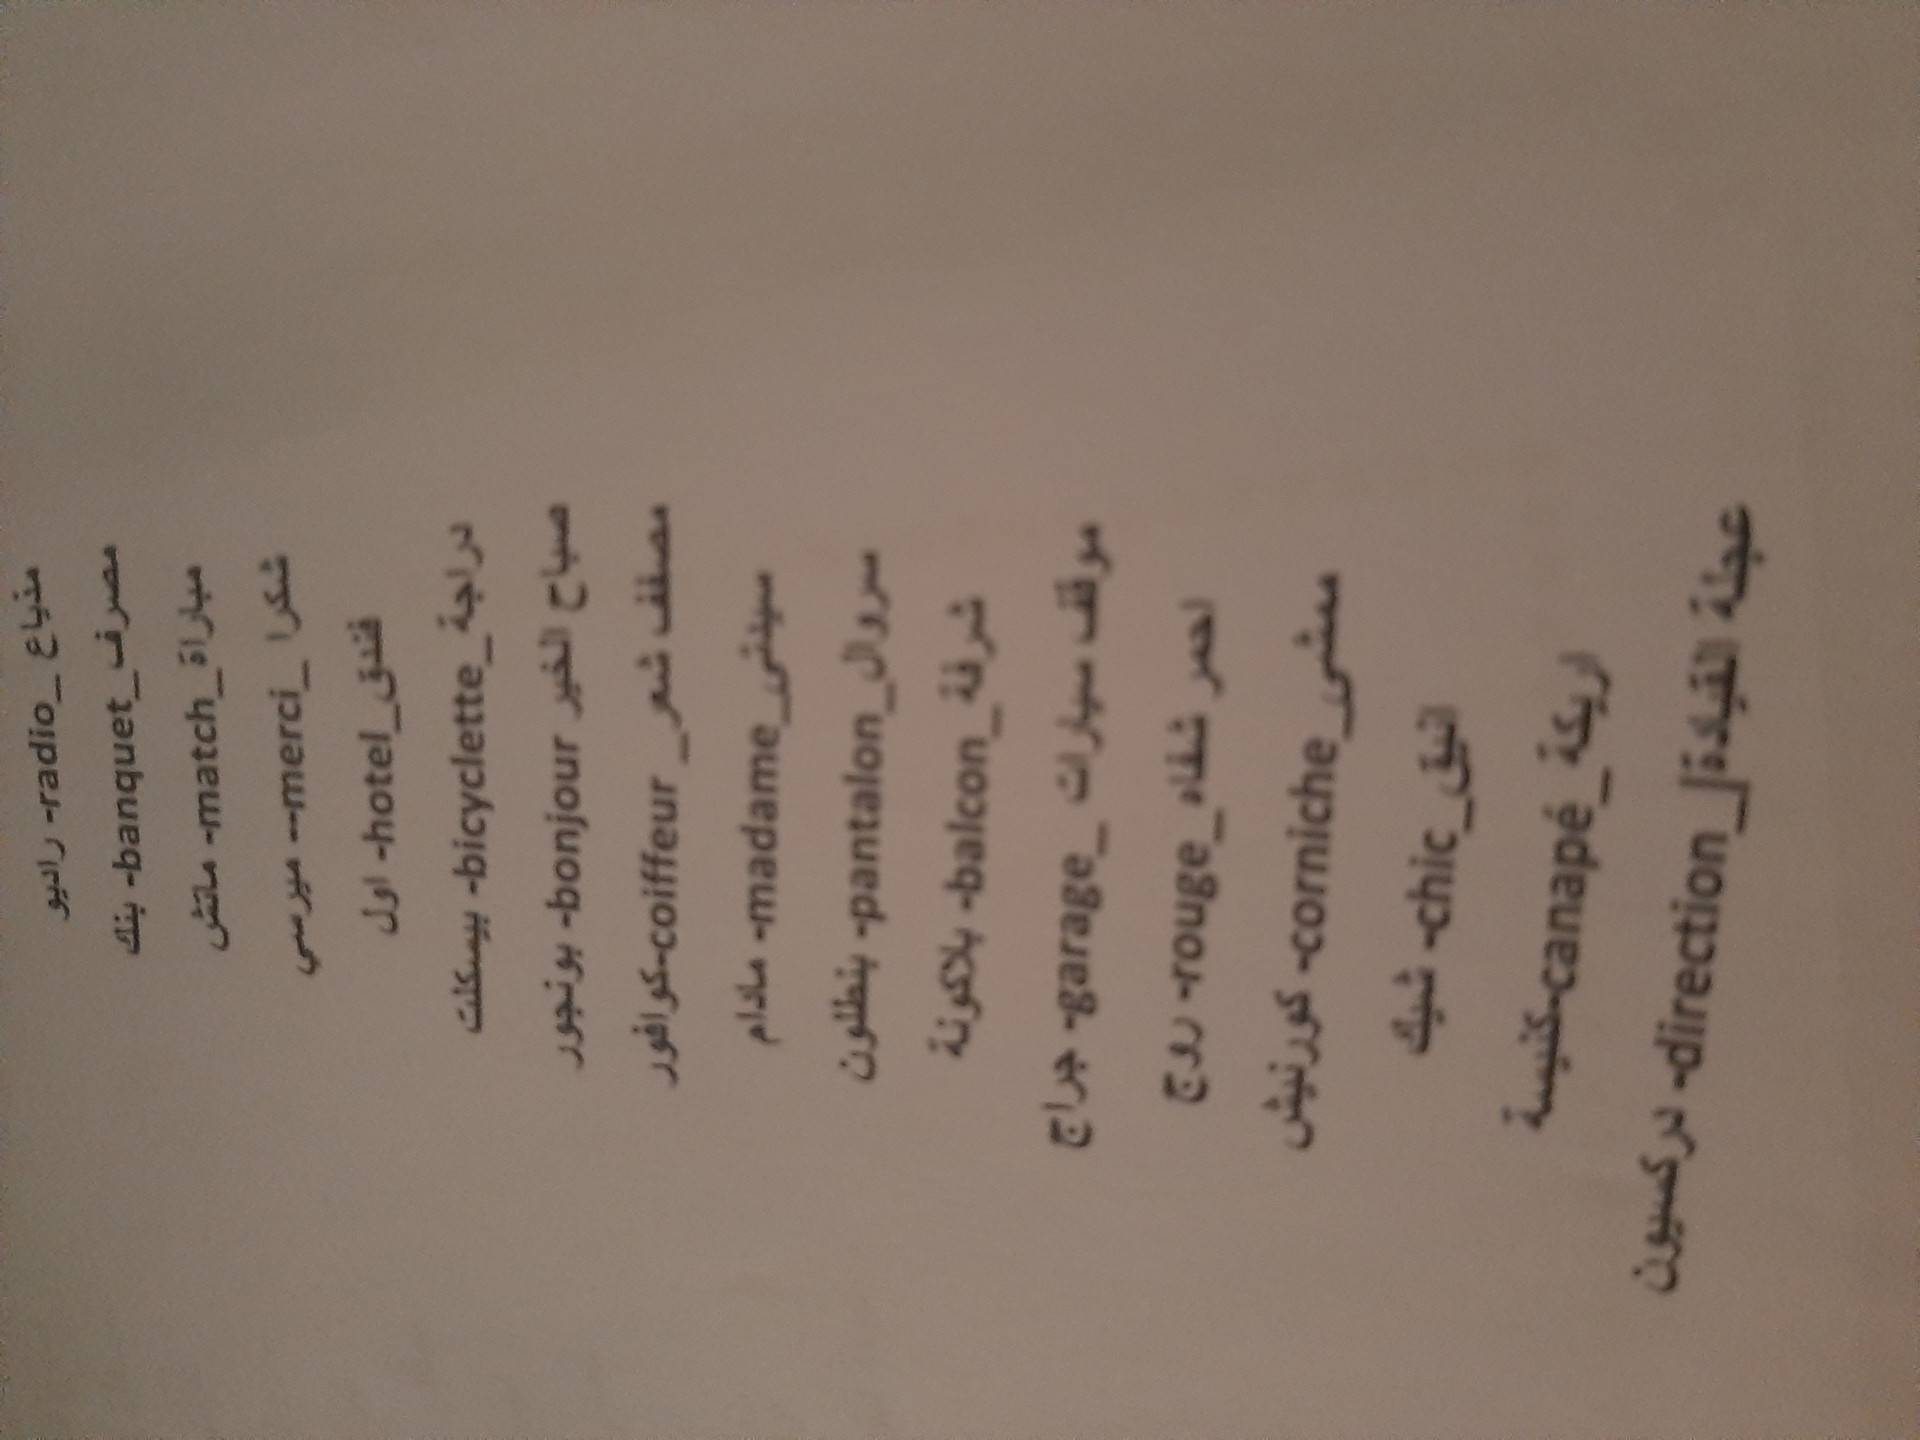 راديو -radio_ مذياع
بنك -banquet_مصرف
ماتش -match_مباراة
ميرسي --merci_ شكرا
اول -hotel_فندق
بيسكلت -bicyclette_دراجة
بونجور -bonjour صباح الخير
كوافور-coiffeur _مصفف شعر
مادام -madame_سيدتي
بنطلون -pantalon_سروال
بلاكونة -balcon_شرفة
جراج -garage_ موقف سيارات
روج -rouge_احمر شفاه
كورنيش -corniche_ممشى
شيك -chic_انيق
كنيسة-canapé_اريكة
دركسيون -direction_عجلة القيادةل